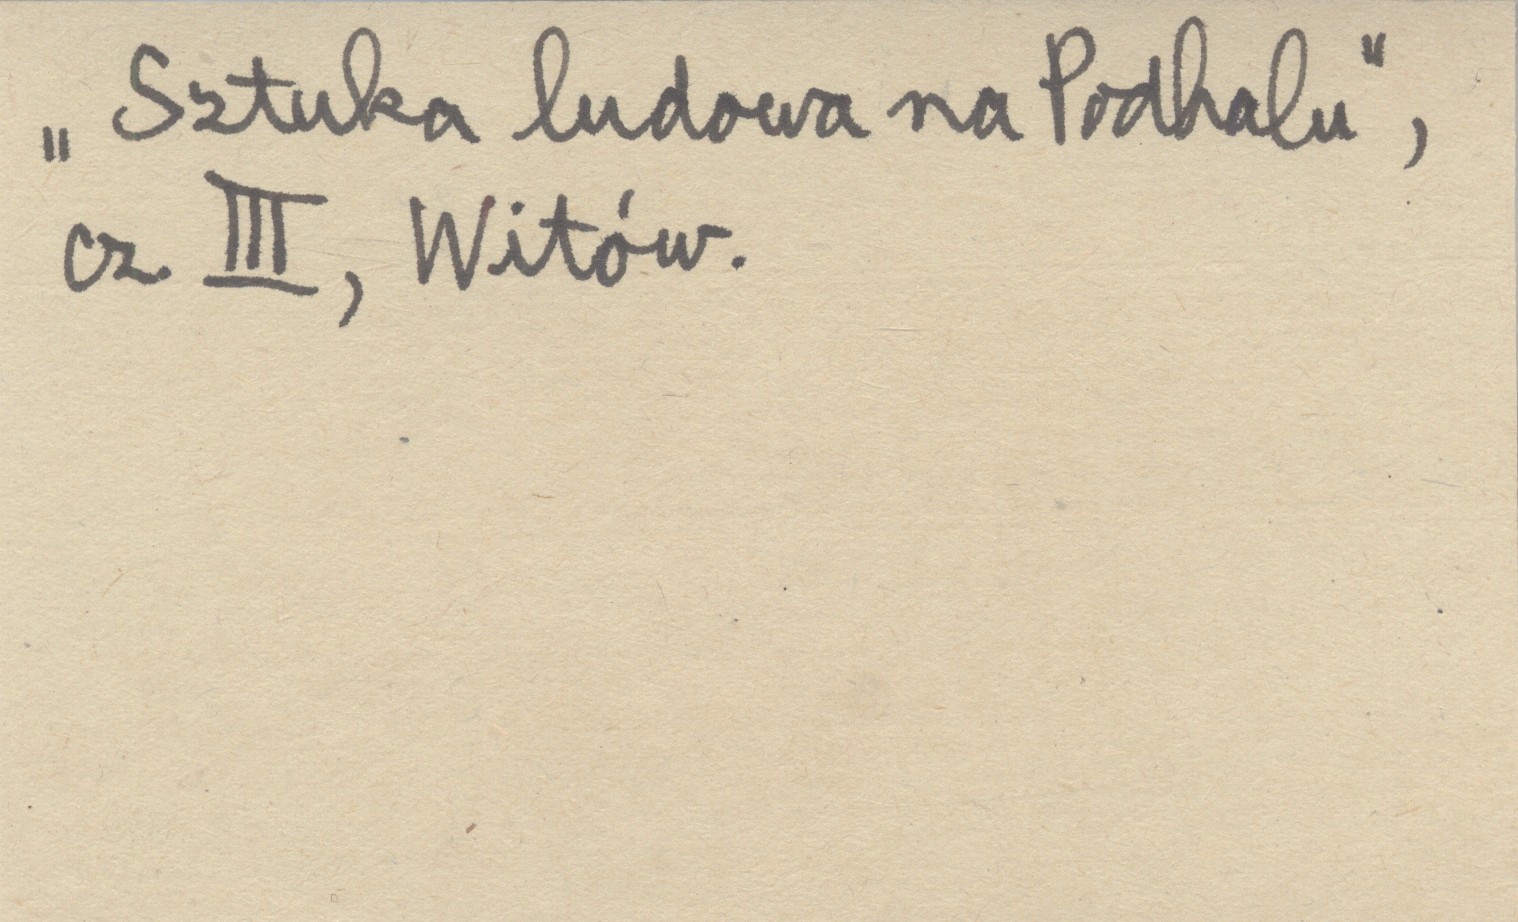 „Sztuka ludowa na Podhalu“,
cz. III, Witów.